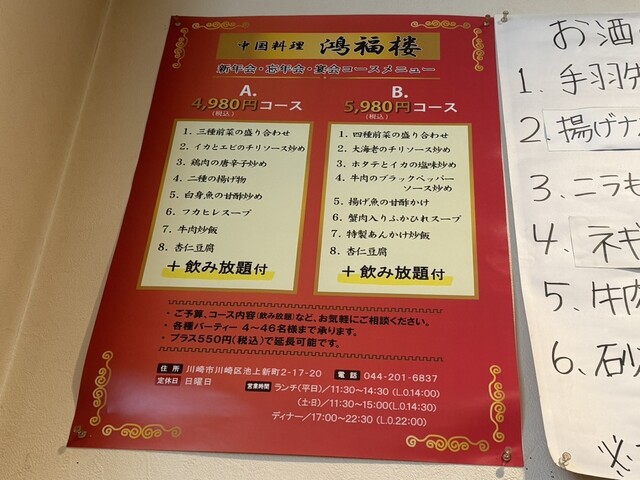 中国料理 鴻福楼
新年会・忘年会・宴会コースメニュー
A.
4,980円コース
(税込)
1. 三種前菜の盛り合わせ
2. イカとエビのチリソース炒め
3. 鶏肉の唐辛子炒め
4. 二種の揚げ物
5. 白身魚の甘酢炒め
6. フカヒレスープ
7. 牛肉炒飯
8. 杏仁豆腐
＋飲み放題付
B.
5,980円コース
(税込)
1. 四種前菜の盛り合わせ
2. 大海老のチリソース炒め
3. ホタテとイカの塩味炒め
4. 牛肉のブラックペッパー
ソース炒め
5. 揚げ魚の甘酢かけ
6. 蟹肉入りふかひれスープ
7. 特製あんかけ炒飯
8. 杏仁豆腐
＋飲み放題付
・ご予算、コース内容(飲み放題)など、お気軽にご相談ください。
・各種パーティー 4〜46名様まで承ります。
・プラス550円(税込)で延長可能です。
住所 川崎市川崎区池上新町2-17-20 電話 044-201-6837
定休日 日曜日 営業時間 ランチ(平日)/11:30~14:30(L.O.14:00)
(土・日)/11:30~15:00(L.O.14:30)
ディナー/17:00~22:30(L.O.22:00)
お酒
1、手羽先
2、揚げナ
3、ニラも
4、ネギ
5、牛肉
6、砂
※